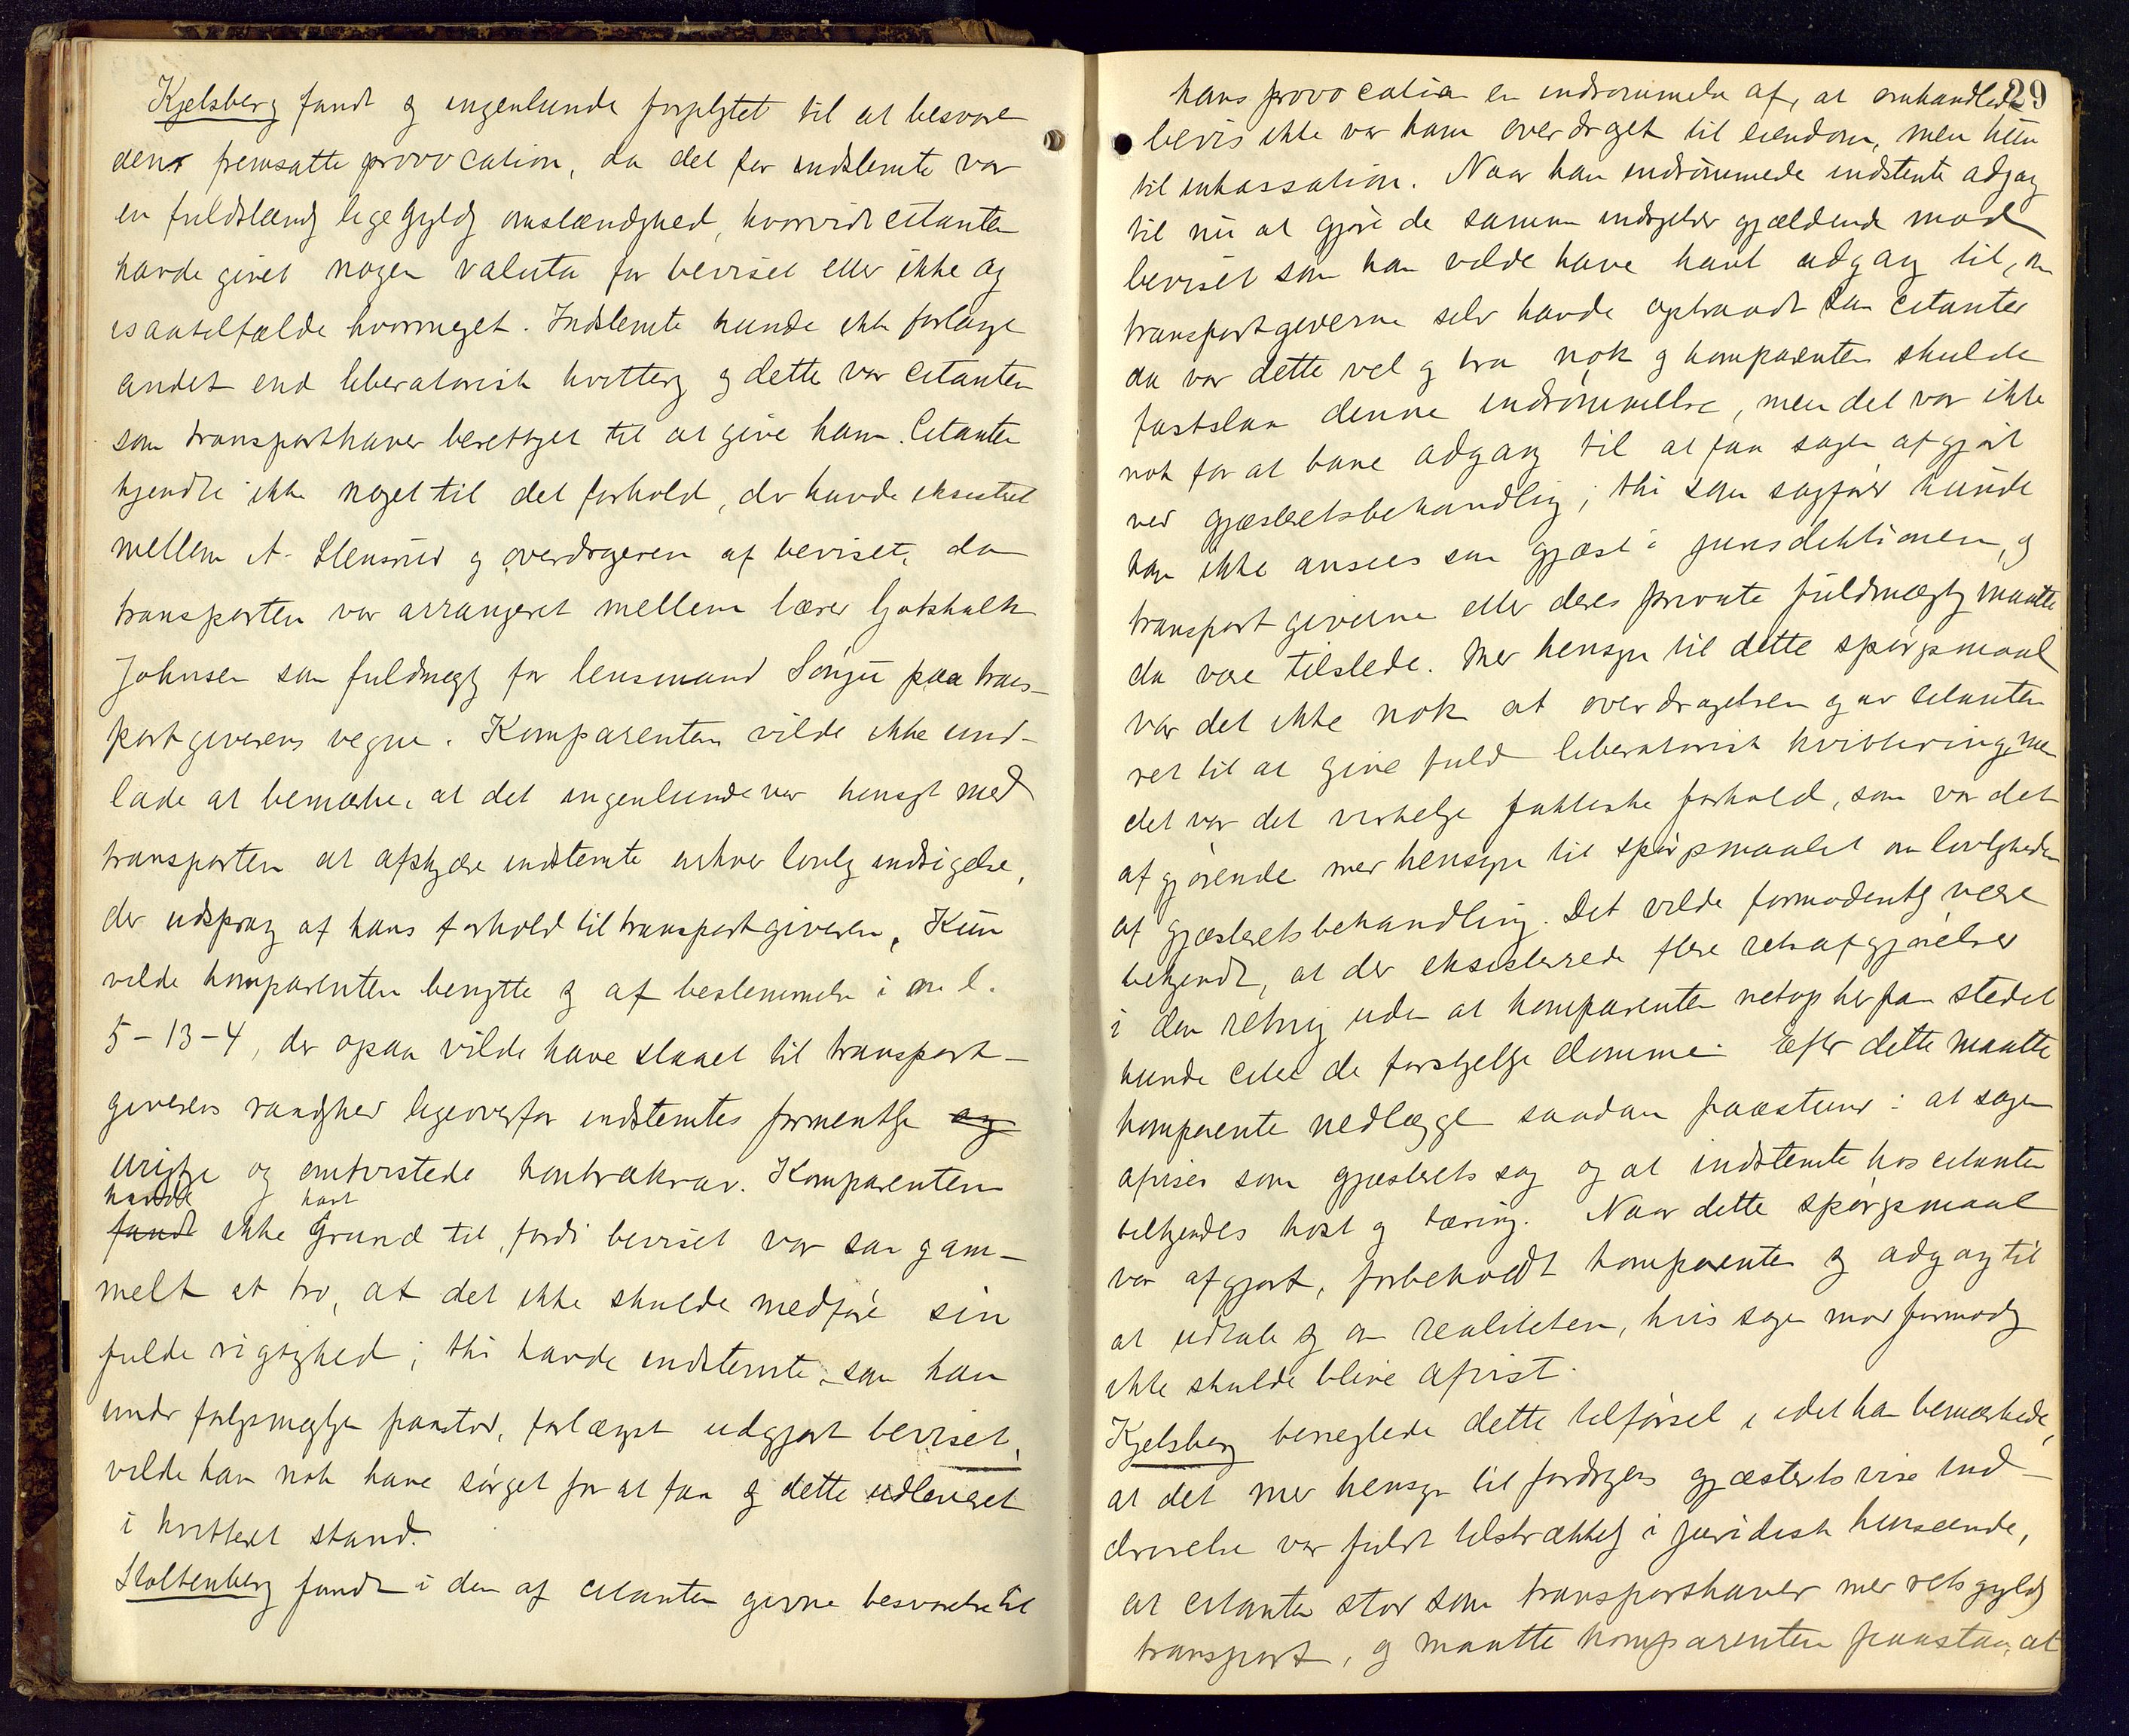 Kjelsberg fandt sg ingenlunde forplgtet til at besvare
den fremsatte provocation, da det for indstemte var
en fuldstændg ligegyldg omstændghed, hvorvidt citanten
havde givet nogen valuta for beviset eller ikke og
isaatilfælde hvormeget. Indstemte kunde ikke forlange
andet end liberatorisk kvitterg og dette var citanten
som transporthaver berettiget til at give ham. Citanten
kjendte ikke noget til det forhold, der havde eksisteret
mellem A. Stensrud og overdrageren af beviset, da
transporten var arrangeret mellem lærer Gotskalk
Johnsen som fuldmægtg for lensmand Sönju paa trans-
portgiverens vegne. Komparenten vilde ikke und-
lade at bemærke, at det ingenlunde var hensigt med
transporten at afskjære indstemte enhver lovlg indsigelse,
der udsprang af hans forhold til transportgiveren, Kun
vilde komparenten benytte sg af bestemmelsen i N. L.
5-13-4, der ogsaa vilde have staaet til transport-
giverens raadghed ligeoverfor indstemtes formentlge og
urigtge og omtvistede kontrakrav. Komparenten
havde havt
fandt ikke Grund til, fordi beviset var saa gam-
melt at tro, at det ikke skulde medföre sin
fulde rigtighed; thi havde indstemte, som han
under forligsmæglgen paastod, forlængst udgjort beviset,
vilde han nok have sörget for at faa sg dette udleveret
i kvitteret stand.
Stoltenberg fandt i den af citanten givne besvarelse til
29
hans provocation en indrömmelse af, at omhandlede
bevis ikke var ham overdraget til eiendom, men kun
til inkassation. Naar han indrömmede indstemte adgang
til nu at gjöre de samme indsigelser gjældende mod
beviset som han vilde have havt adgang til, om
transportgiverne selv havde optraadt som citanter
da var dette vel og bra nok og komparenten skulde
fastslaa denne indrömmelse, men det var ikke
nok for at have adgang til at faa sagen afgjort
ved gjæsteretsbehandling; thi som sagförer kunde
han ikke ansees som gjæst i jurisdiktionen, og
transportgiverne eller deres private fuldmægtg maatte
da være tilstede. Med hensyn til dette spörgsmaal
var det ikke nok at overdragelsen gav citanten
ret til at give fuld liberatorisk kvittering, men
det var det virkelge faktiske forhold, som var det
afgjörende med hensyn til spörgsmaalet om lovlgheden
af gjæsteretsbehandling. Det vilde formodentlg være
bekjendt, at der eksisterede flere retsafgjörelser
i den retning uden at komparenten netop her paa stedet
kunde citere de forskjellge domme. Efter dette maatte
komparenten nedlægge saadan paastand: at sagen
afvises som gjæsterets sag og at indstemte hos citanten
tilkjendes kost og tæring. Naar dette spörgsmaal
var afgjort, forbeholdt komparenten sg adgang til
at udtale sg om realiteten, hvis sagen mod formodg
ikke skulde blive afvist.
Kjelsberg benegtede dette tilförsel, idet han bemærkede,
at det med hensyn til fordringens gjæsteretsvise ind-
drivelse var fuldt tilstrækkelg i juridisk henseende,
at citanten stod som transporthaver med retsgyldg
transport, og maatte komparenten paastaa, at